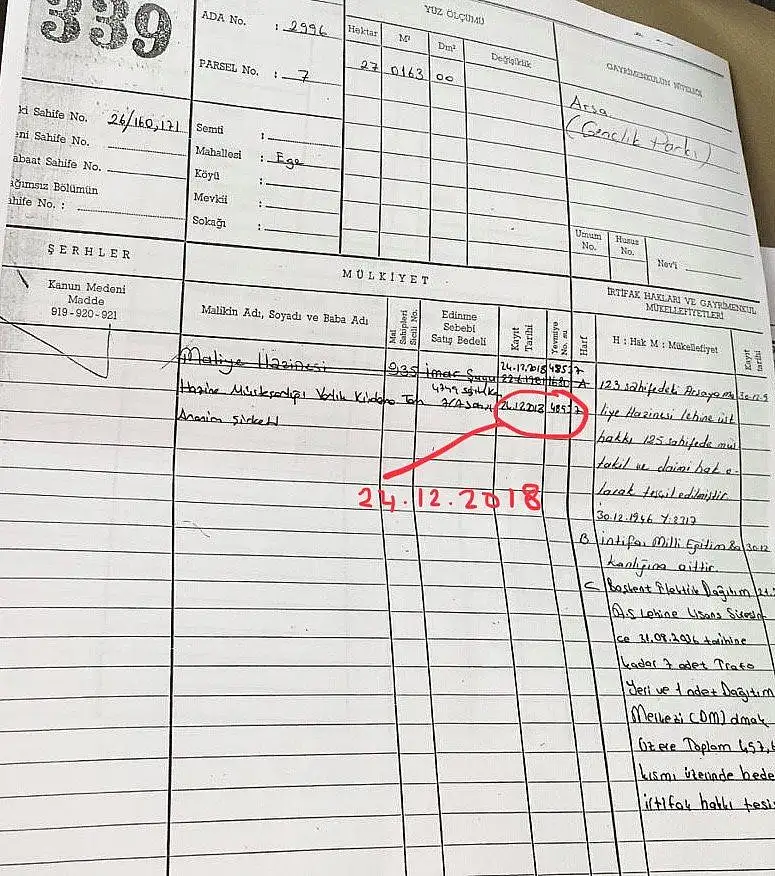 339
ADA No. : 2996
PARSEL No. : 7
YÜZ ÖLÇÜMÜ
Hektar M² Dm² Değişiklik
27 0163 00
GAYRİMENKULÜN NİTELİĞİ
Arsa
(Gençlik Parkı)
ki Sahife No. 26/160,171
eni Sahife No.
abaat Sahife No.
ağımsız Bölümün
ahife No. :
Semti :
Mahallesi : Ege
Köyü :
Mevkii :
Sokağı :
Umum No.
Husus No.
Nev'i
ŞERHLER
Kanun Medeni
Madde
919-920-921
MÜLKİYET
Malikin Adı, Soyadı ve Baba Adı
Mal Sahipleri Sicili No.
Edinme
Sebebi
Satış Bedeli
Kayıt Tarihi
Yevmiye No. su
Harf
İRTİFAK HAKLARI VE GAYRİMENKUL
MÜKELLEFİYETLERİ
H : Hak M : Mükellefiyet
Kayıt tarihi
Maliye Hazinesi 935 İmar 24.12.2018 48527
Hazine Müsteşarlığı Varlık Kiralama
24.12.2018
Anonim Şirketi
24.12.2018
A 123 sahifedeki Arsaya ma
liye Hazinesi lehine üst
hakkı 125 sahifede müs
takil ve daimi hak o-
larak tescil edilmiştir
30.12.1946 Y:8717
B İntifaı Milli Eğitim Ba 30.12
kanlığına aittir.
C Başkent Elektrik Dağıtım
A.Ş Lehine Lisans Süresin
ce 31.08.2036 tarihine
kadar 7 adet Trafo
Yeri ve 1 adet Dağıtım
Merkezi (DM) olmak
Üzere Toplam 457,
kısmı üzerinde bede
irtifak hakkı tesi